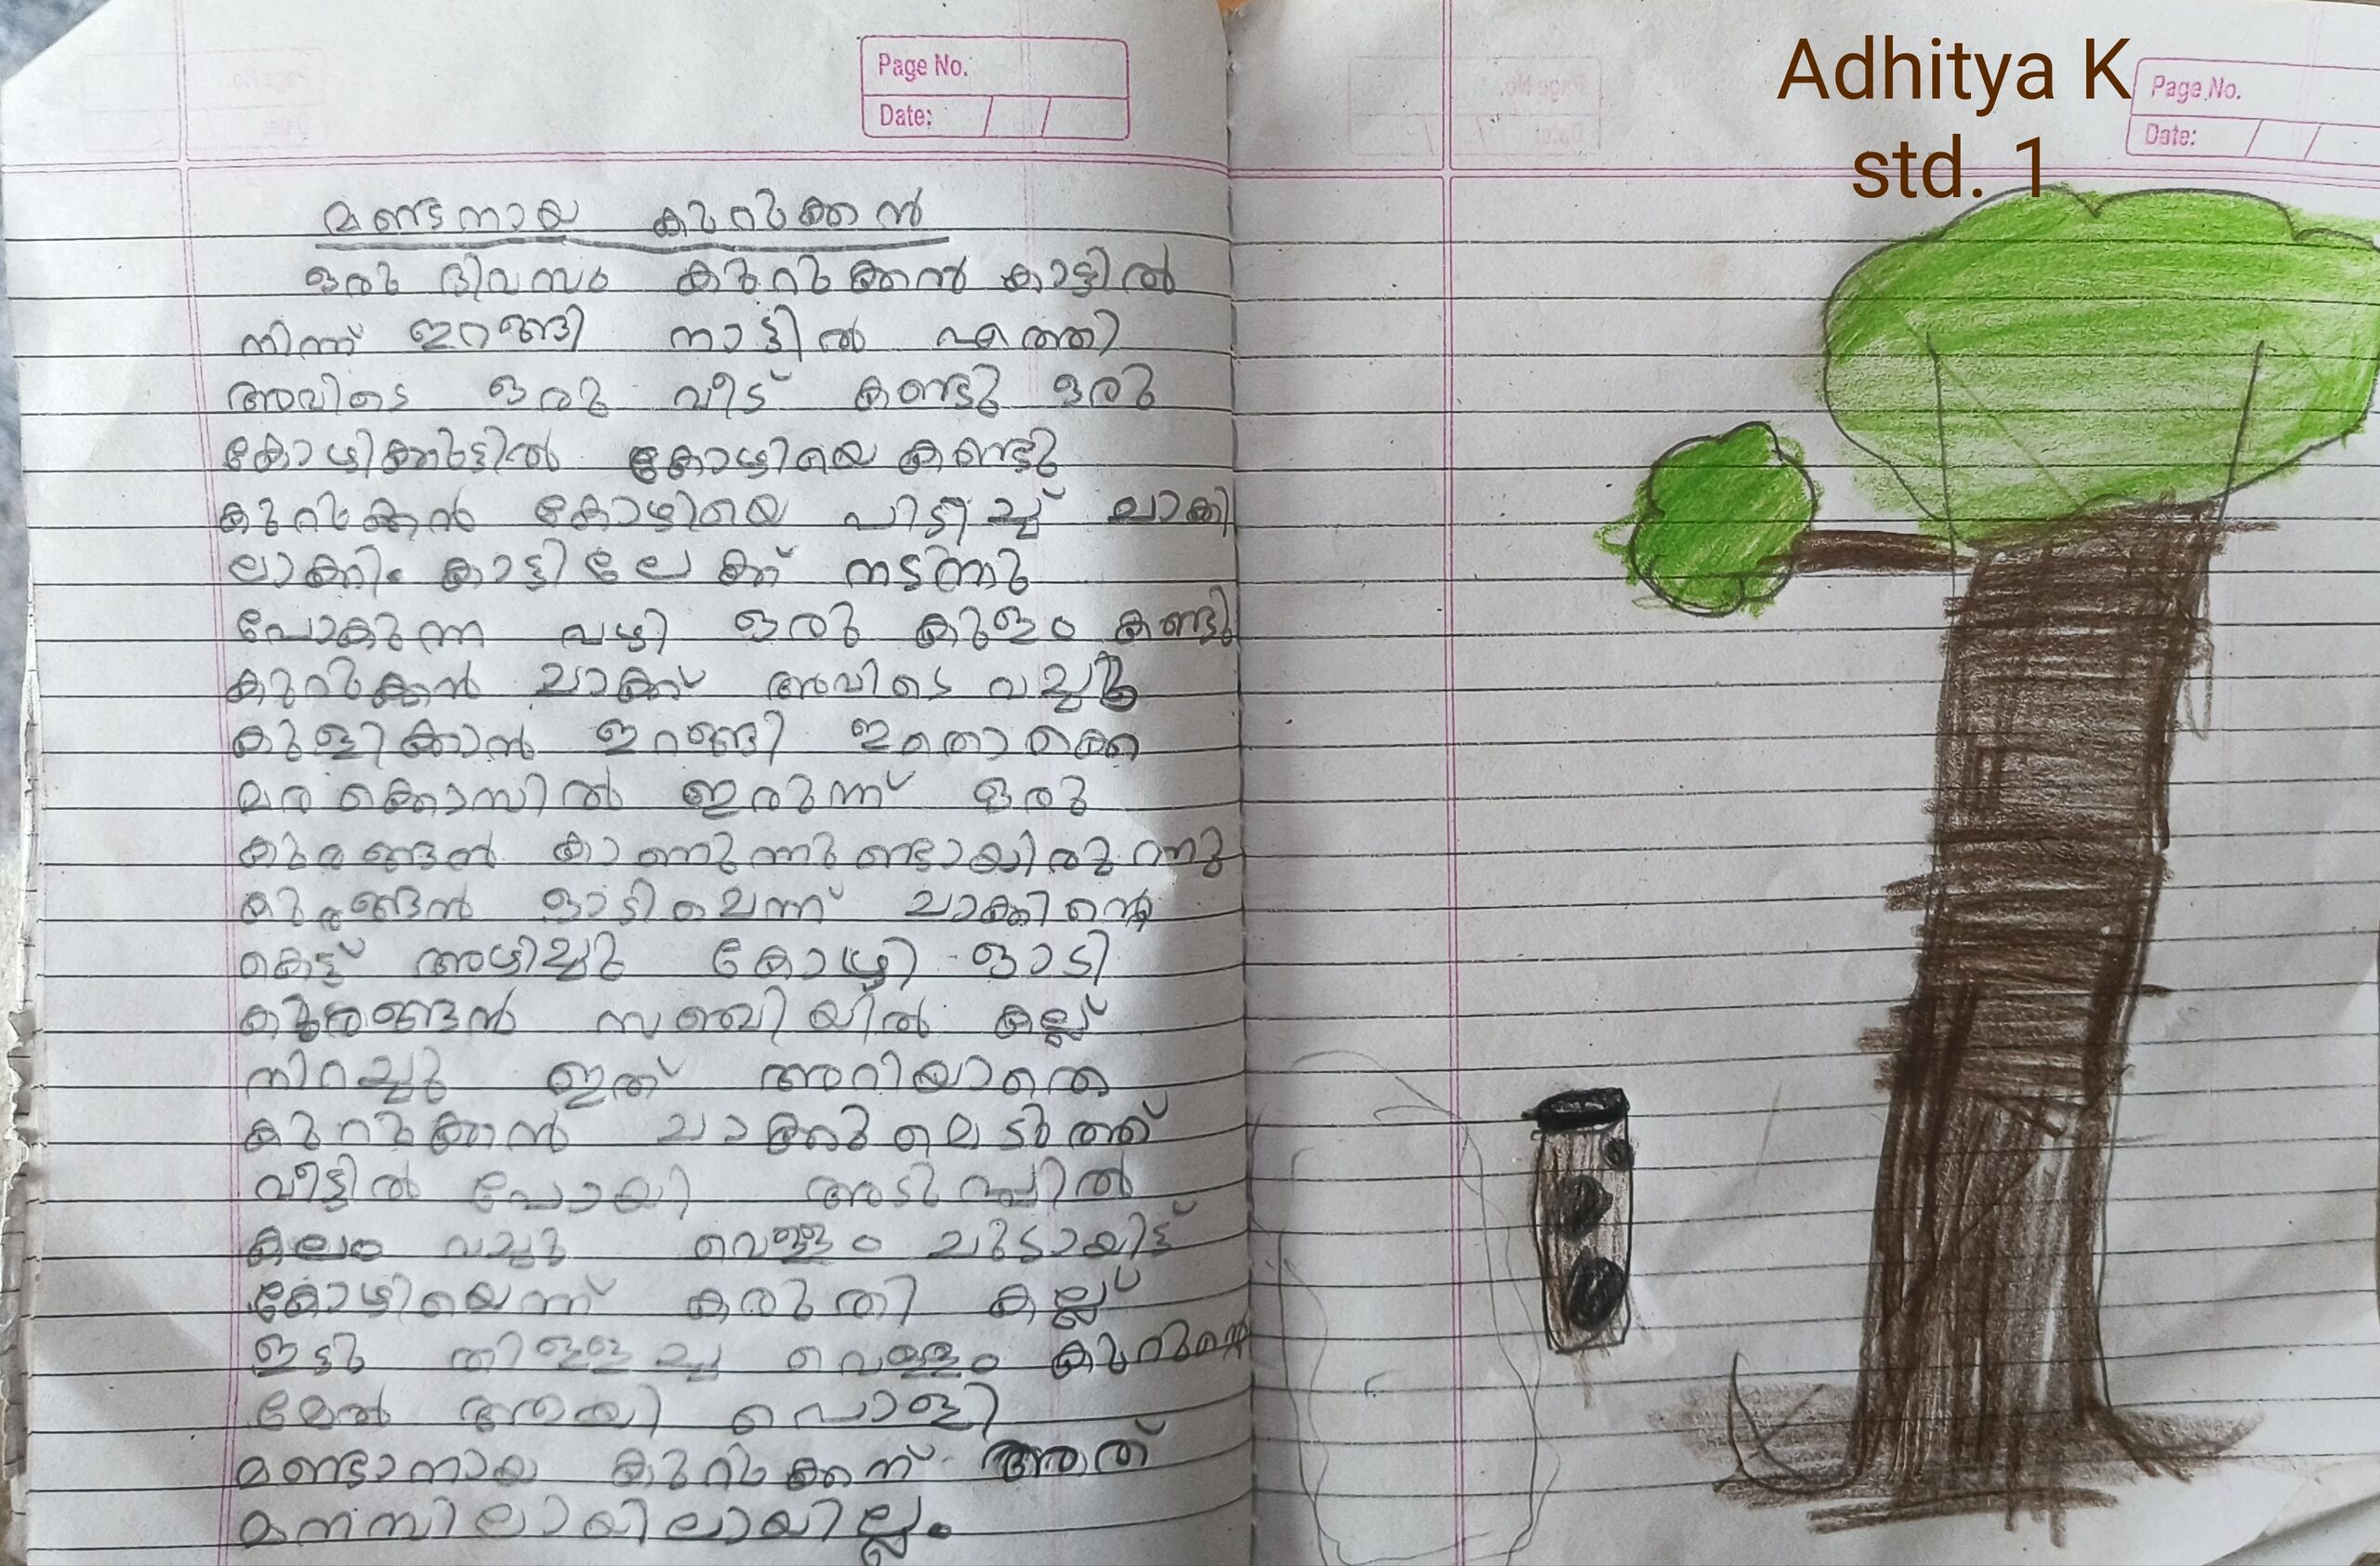 Page No.
Date:
Adhitya K
std. 1
Page No.
Date:
മണ്ടനായ കുറുക്കൻ
ഒരു ദിവസം കുറുക്കൻ കാട്ടിൽ
നിന്ന് ഇറങ്ങി നാട്ടിൽ എത്തി
അവിടെ ഒരു വീട് കണ്ടു ഒരു
കോഴിക്കൂട്ടിൽ കോഴിയെ കണ്ടു
കുറുക്കൻ കോഴിയെ പിടിച്ച് ചാക്കി
ലാക്കി കാട്ടിലേക്ക് നടന്നു
പോകുന്ന വഴി ഒരു കുളം കണ്ടു
കുറുക്കൻ ചാക്ക് അവിടെ വച്ചു
കുളിക്കാൻ ഇറങ്ങി ഇതൊക്കെ
മര കൊമ്പിൽ ഇരുന്ന് ഒരു
കുരങ്ങൻ കാണുന്നുണ്ടായിരുന്നു
കുരങ്ങൻ ഓടിചെന്ന് ചാക്കിന്റെ
കെട്ട് അഴിച്ചു കോഴി ഓടി
കുരങ്ങൻ സഞ്ചിയിൽ കല്ല്
നിറച്ചു ഇത് അറിയാതെ
കുറുക്കൻ ചാക്കുമെടുത്ത്
വീട്ടിൽ പോയി അടുപ്പിൽ
കലം വച്ചു വെള്ളം ചുടായിട്ട്
കോഴിയെന്ന് കരുതി കല്ല്
ഇട്ടു തിളച്ച വെള്ളം
മേൽ ആയി പൊളി
മണ്ടാനായ കുറുക്കന് അത്
മനസിലായിലായില്ല.